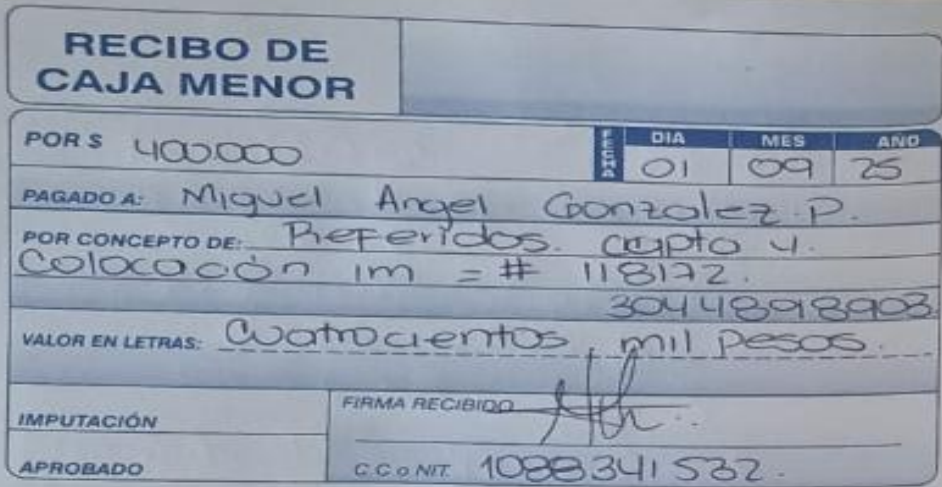 RECIBO DE
CAJA MENOR
POR $ 400.000
FECHA
DIA MES AÑO
01 09 25
PAGADO A: Miguel Angel Gonzalez P.
POR CONCEPTO DE: Referidos. cripto y.
Colocación 1m = # 118172.
30448918903
VALOR EN LETRAS: Cuatrocientos mil pesos.
IMPUTACIÓN
FIRMA RECIBIDO
APROBADO
C.C o NIT. 1088341532.